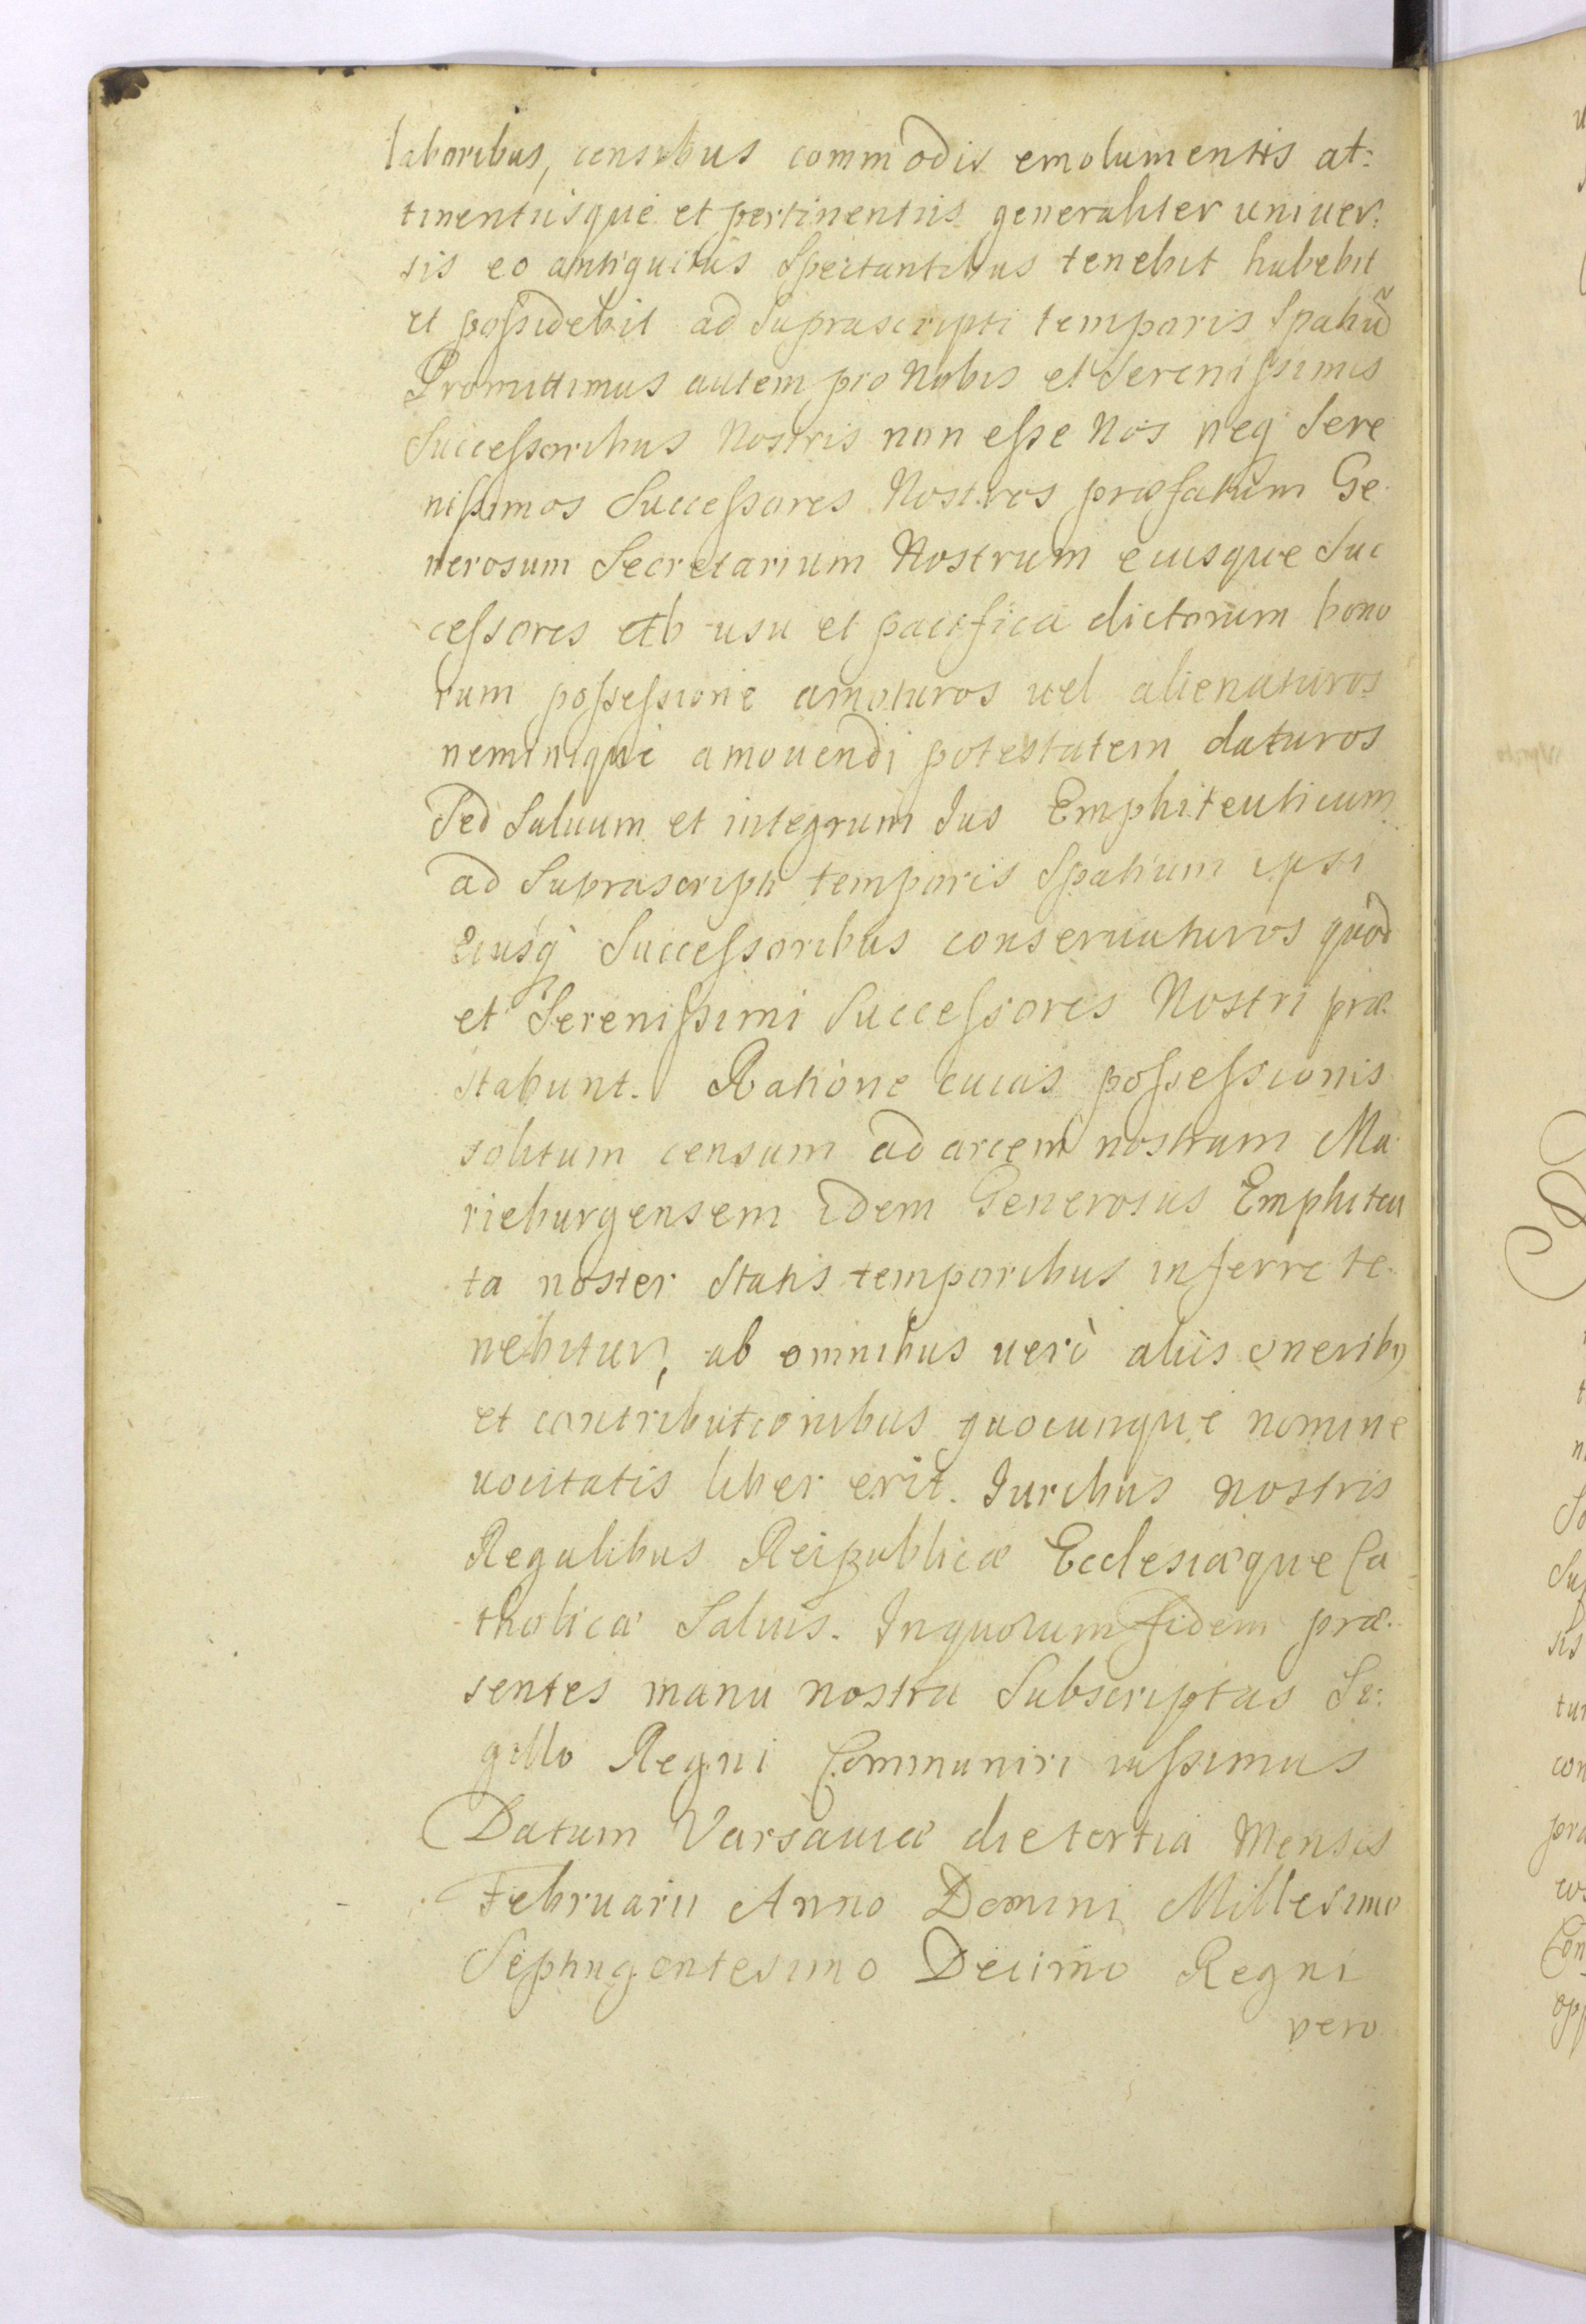 laboribus, censibus commodis emolumentis at:
tinentiisque et pertinentiis generaliter uniuer:
sis eo antiquitùs Spectantibus tenebit habebit
et poſsidebit ad Suprascripti temporis Spatiũ
Promittimus autem pro Nobis et Sereniſsimis
Succeſsoribus Nostris non eſse Nos neq Sere
niſsimos Succeſsores Nostros præfatum Ge.
nerosum Secretarium Nostrum eiusque Suc
ceſsores ab usu et pacifica dictorum bono
rum poſseſsione amoturos uel alienaturos
neminique amouendi potestatem daturos
Sed Saluum et integrum Ius Emphiteuticum
ad Suprascripti temporis Spatium ipsi
Eiusq Succeſsoribus conseruaturos quòd
et Sereniſsimi Succeſsores Nostri præ.
stabunt. Ratione cuius poſseſsionis
solitum censum ad arcem nostram Ma.
rieburgensem idem Generosus Emphiteu
ta noster Statis temporibus inferre te.
nebitur, ab omnibus uerò aliis oneribꝰ
et contributionibus quocunque nomine
uocitatis liber erit. Iuribus nostris
Regalibus Reipublicæ Ecclesiæque Ca
tholicæ Saluis. In quorum fidem præ.
sentes manu nostra Subscriptas Si:
gillo Regni Communiri iuſsimus
Datum Varsauiæ die tertia Mensis
Februarii Anno Domini Millesimo
Septingentesimo Decimo Regni
vero